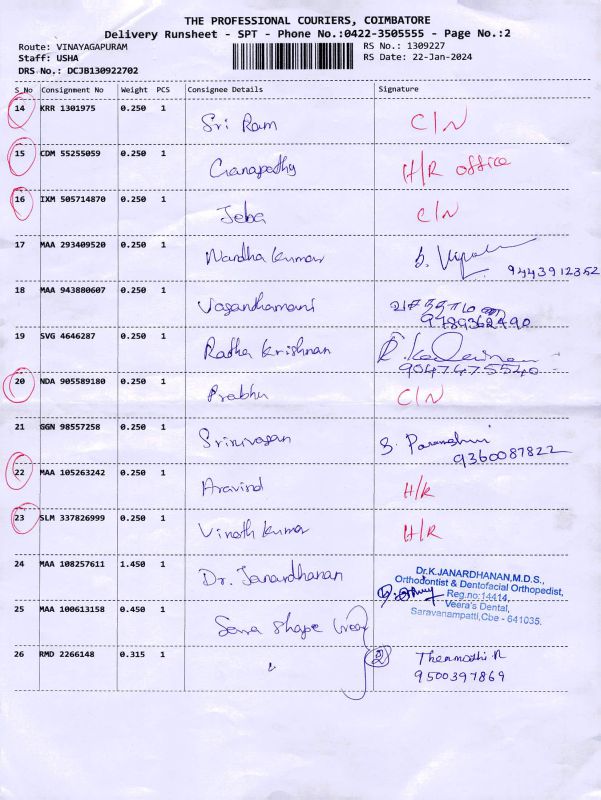 THE PROFESSIONAL COURIERS, COIMBATORE
Delivery Runsheet - SPT - Phone No.:0422-3505555 - Page No.:2
Route: VINAYAGAPURAM
RS No.: 1309227
Staff: USHA
RS Date: 22-Jan-2024
DRS No.: DCJB130922702
S_No Consignment No Weight PCS Consignee Details Signature
14 KRR 1301975 0.250 1 Sri Ram C/N
15 CDM 55255059 0.250 1 Ganapathy H/R office
16 IXM 505714870 0.250 1 Jeba C/N
17 MAA 293409520 0.250 1 Nandha Kumar
9443912352
18 MAA 943800607 0.250 1 Vasandhamani
9789362490
19 SVG 4646287 0.250 1 Radha Krishnan
9047475540
20 NDA 905589180 0.250 1 Prabhu C/N
21 GGN 98557258 0.250 1 Srinivasan
9360087822
22 MAA 105263242 0.250 1 Aravind H/R
23 SLM 337826999 0.250 1 Vinoth Kumar H/R
24 MAA 108257611 1.450 1 Dr. Janardhanan
Dr.K.JANARDHANAN,M.D.S.,
Orthodontist & Dentofacial Orthopedist,
Reg.no:14414,
Veera's Dental,
Saravanampatti,Cbe - 641035.
25 MAA 100613158 0.450 1 Shape
26 RMD 2266148 0.315 1 2
9500397869